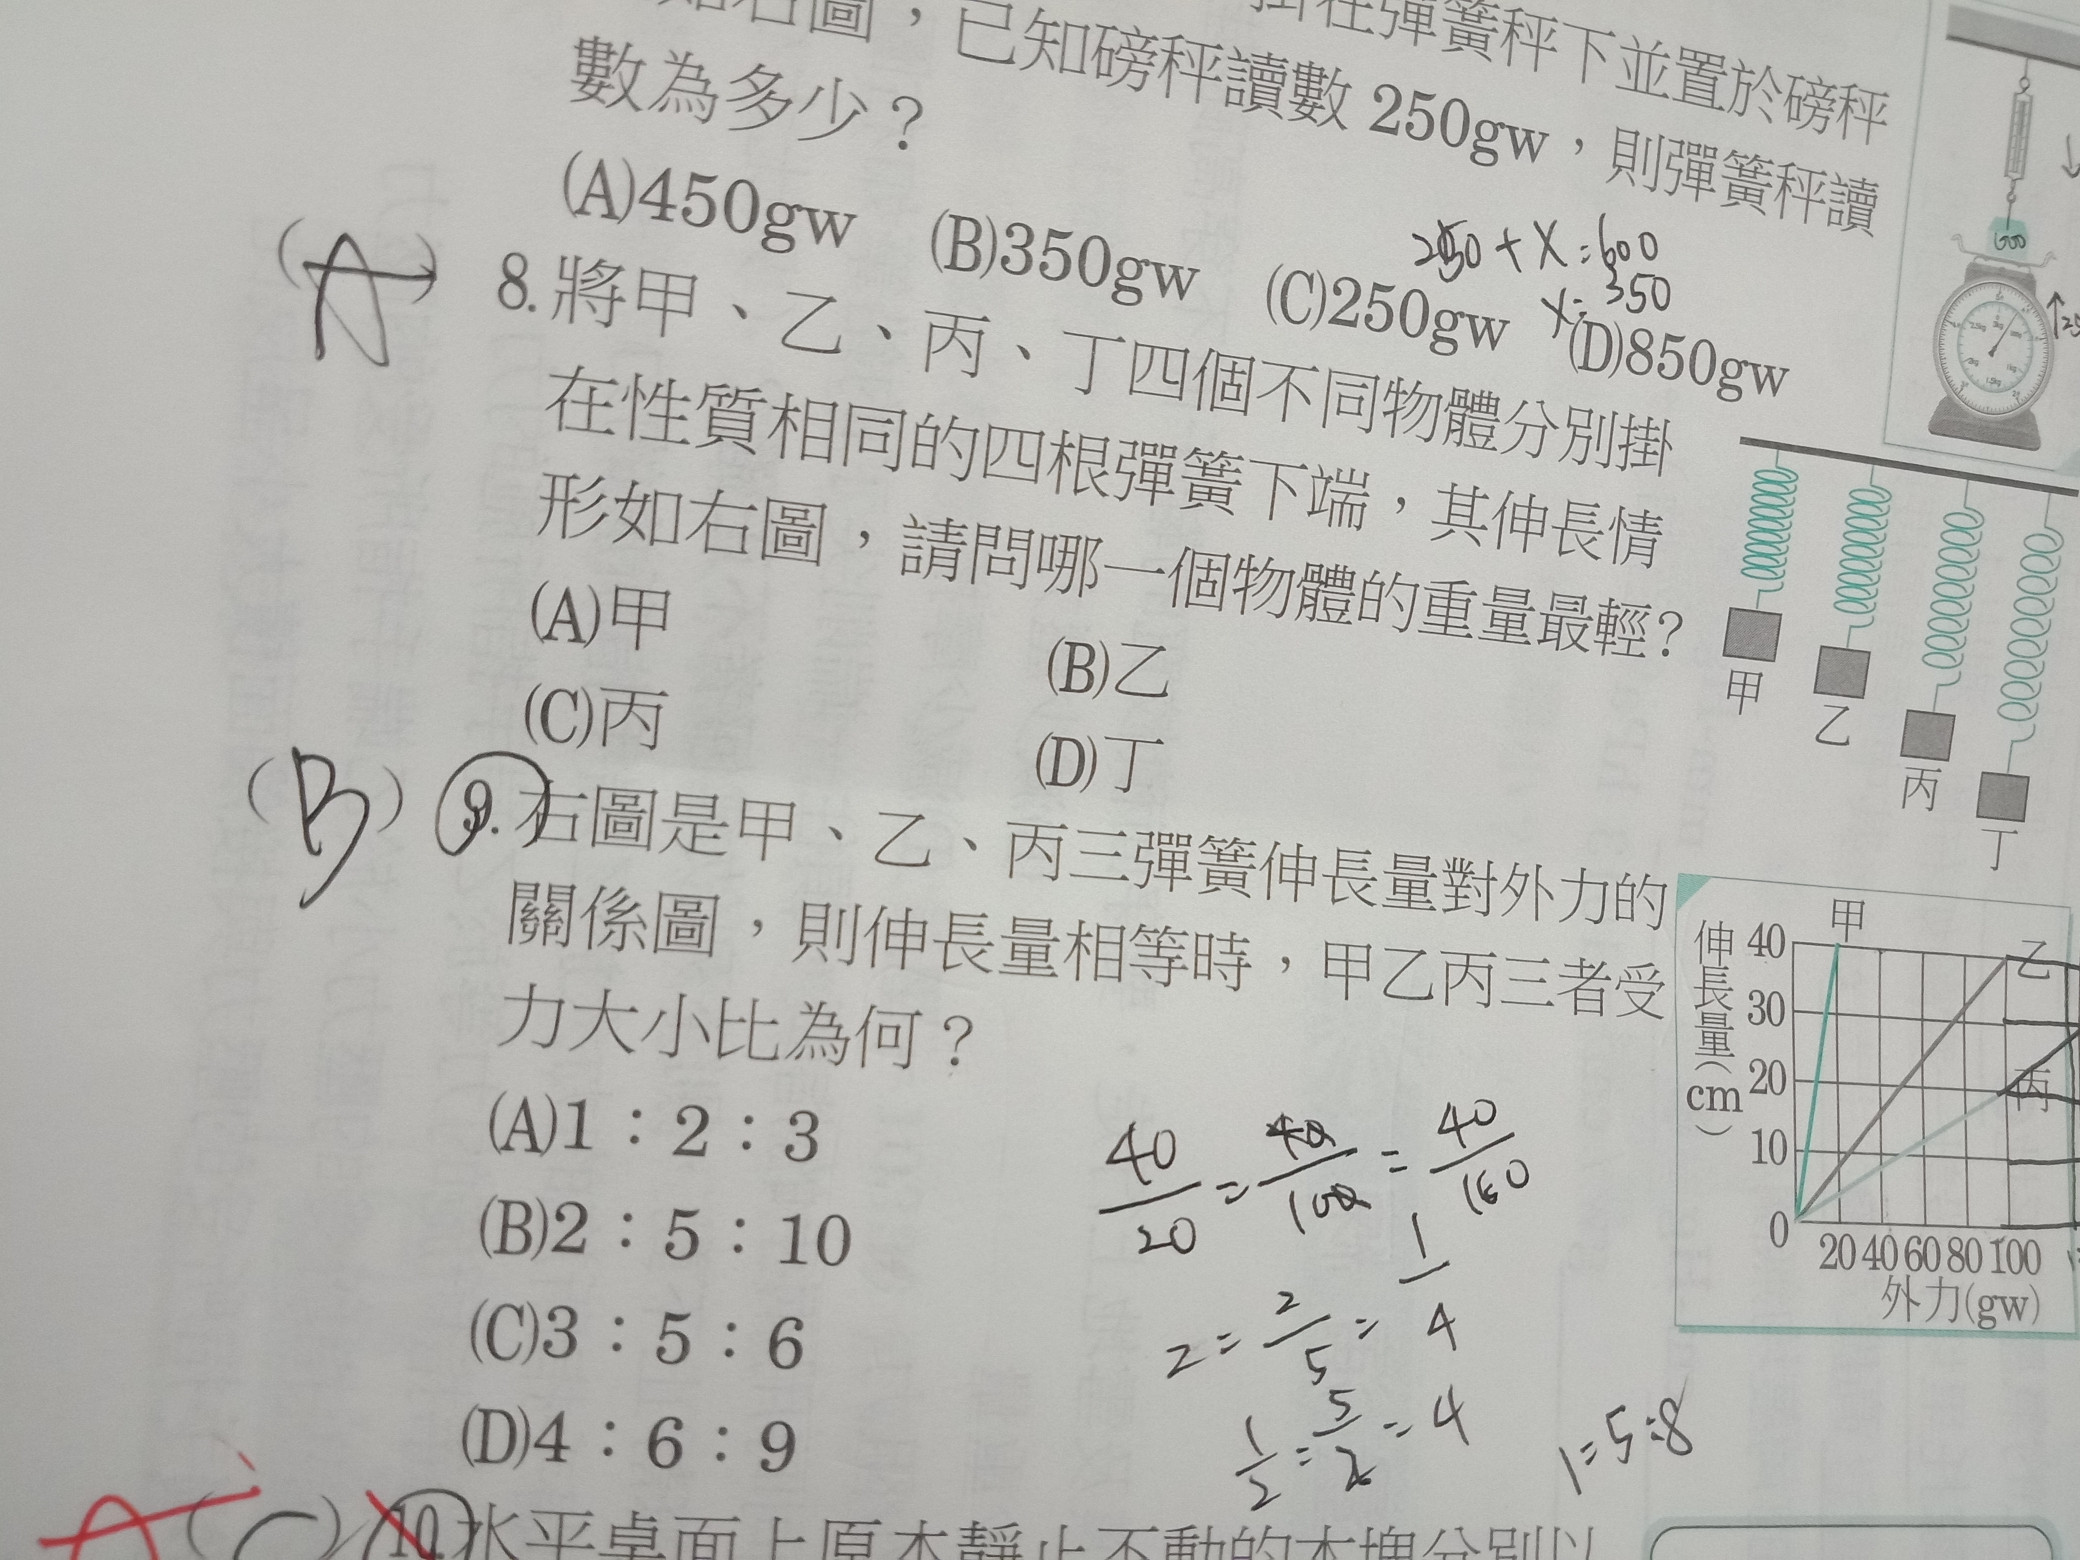 右圖，已知磅秤讀數 250gw，則彈簧秤讀
掛在彈簧秤下並置於磅秤
數為多少？
(A)450gw (B)350gw (C)250gw (D)850gw
250 + X = 600
X = 350
600
(A) 8. 將甲、乙、丙、丁四個不同物體分別掛
在性質相同的四根彈簧下端，其伸長情
形如右圖，請問哪一個物體的重量最輕？
(A)甲 (B)乙
(C)丙 (D)丁
甲 乙 丙 丁
(B) 9. 右圖是甲、乙、丙三彈簧伸長量對外力的
關係圖，則伸長量相等時，甲乙丙三者受
力大小比為何？
(A)1：2：3
(B)2：5：10
(C)3：5：6
(D)4：6：9
伸長量(cm)
40
30
20
10
0
20 40 60 80 100
外力(gw)
甲
乙
丙
40/20 = 40/100 = 40/160
2 = 2/5 = 1/4
1/2 = 5/2 = 4
1 = 5 : 8
A (C) 10. 水平桌面上原本靜止不動的木塊分別以